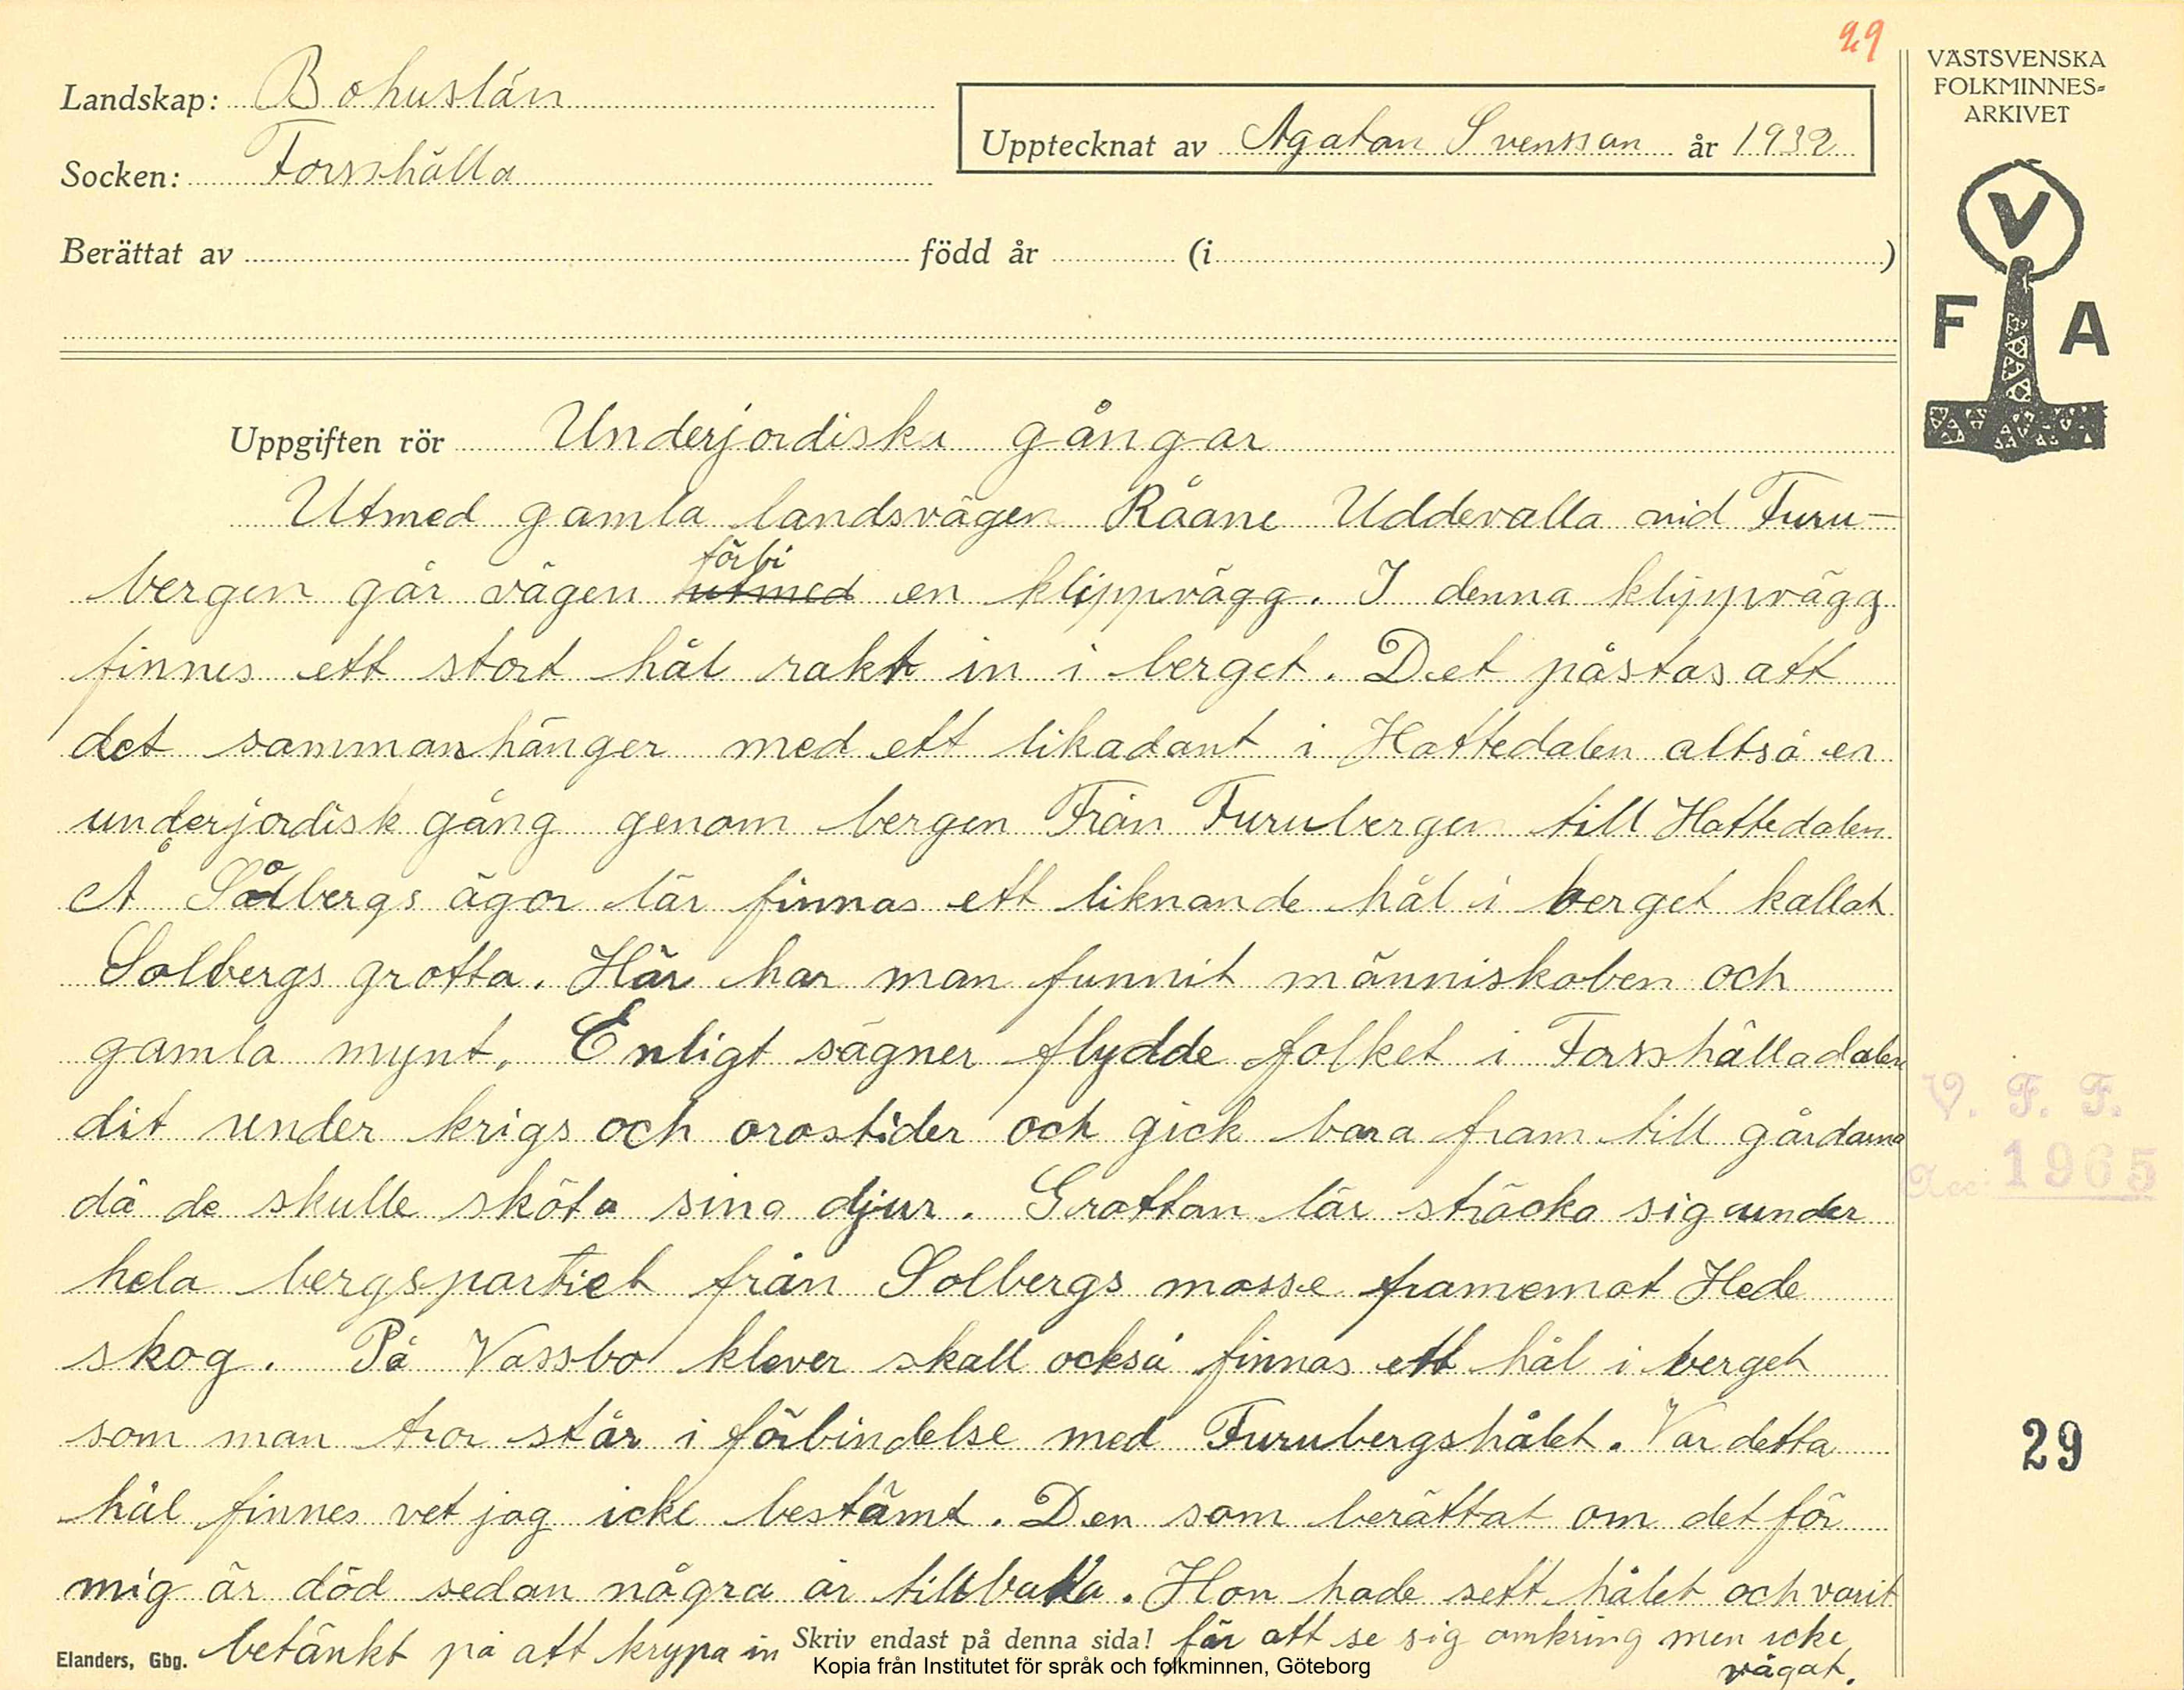 29
VÄSTSVENSKA
FOLKMINNES=
ARKIVET
Landskap: Bohuslän
Upptecknat av Agaton Svensson år 1932
Socken: Forshälla
Berättat av född år (i )
V
F A
Uppgiften rör Underjordiska gångar
Utmed gamla landsvägen Råane Uddevalla vid Furu-
förbi
bergen går vägen utmed en klippvägg. I denna klippvägg
finnes ett stort hål rakt in i berget. Det påstas att
det sammanhänger med ett likadant i Hattedalen altså en
underjordisk gång genom bergen Från Furubergen till Hattedalen
Å Sålbergs ägor lär finnas ett liknande hål i berget kallat
Solbergs grotta. Här har man funnit människoben och
gamla mynt. Enligt sägner flydde folket i Forshälladalen
dit under krigs och orostider och gick bara fram till gårdarna
då de skulle sköta sina djur. Grottan lär sträcka sig under
hela bergspartiet från Solbergs mosse framemot Hede
skog. På Vassbo klever skall också finnas ett hål i berget
som man tror står i förbindelse med Furubergshålet. Var detta
hål finnes vet jag icke bestämt. Den som berättat om det för
mig är död sedan några år tillbaka. Hon hade sett hålet och varit
betänkt på att krypa in för att se sig omkring men icke
vågat.
Elanders, Gbg.
Skriv endast på denna sida!
Kopia från Institutet för språk och folkminnen, Göteborg
V. F. F.
Acc: 1965
29